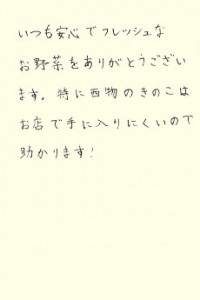 いつも安心でフレッシュな
お野菜をありがとうござい
ます。特に西物のきのこは
お店で手に入りにくいので
助かります!